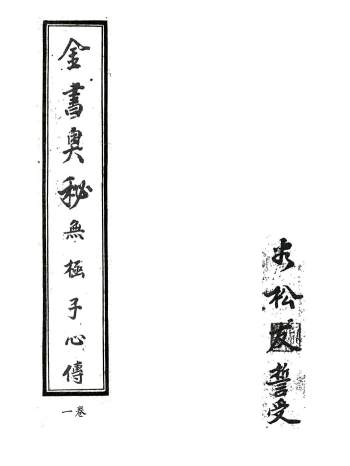 松友誓受
金書奧秘無極子心傳
卷一